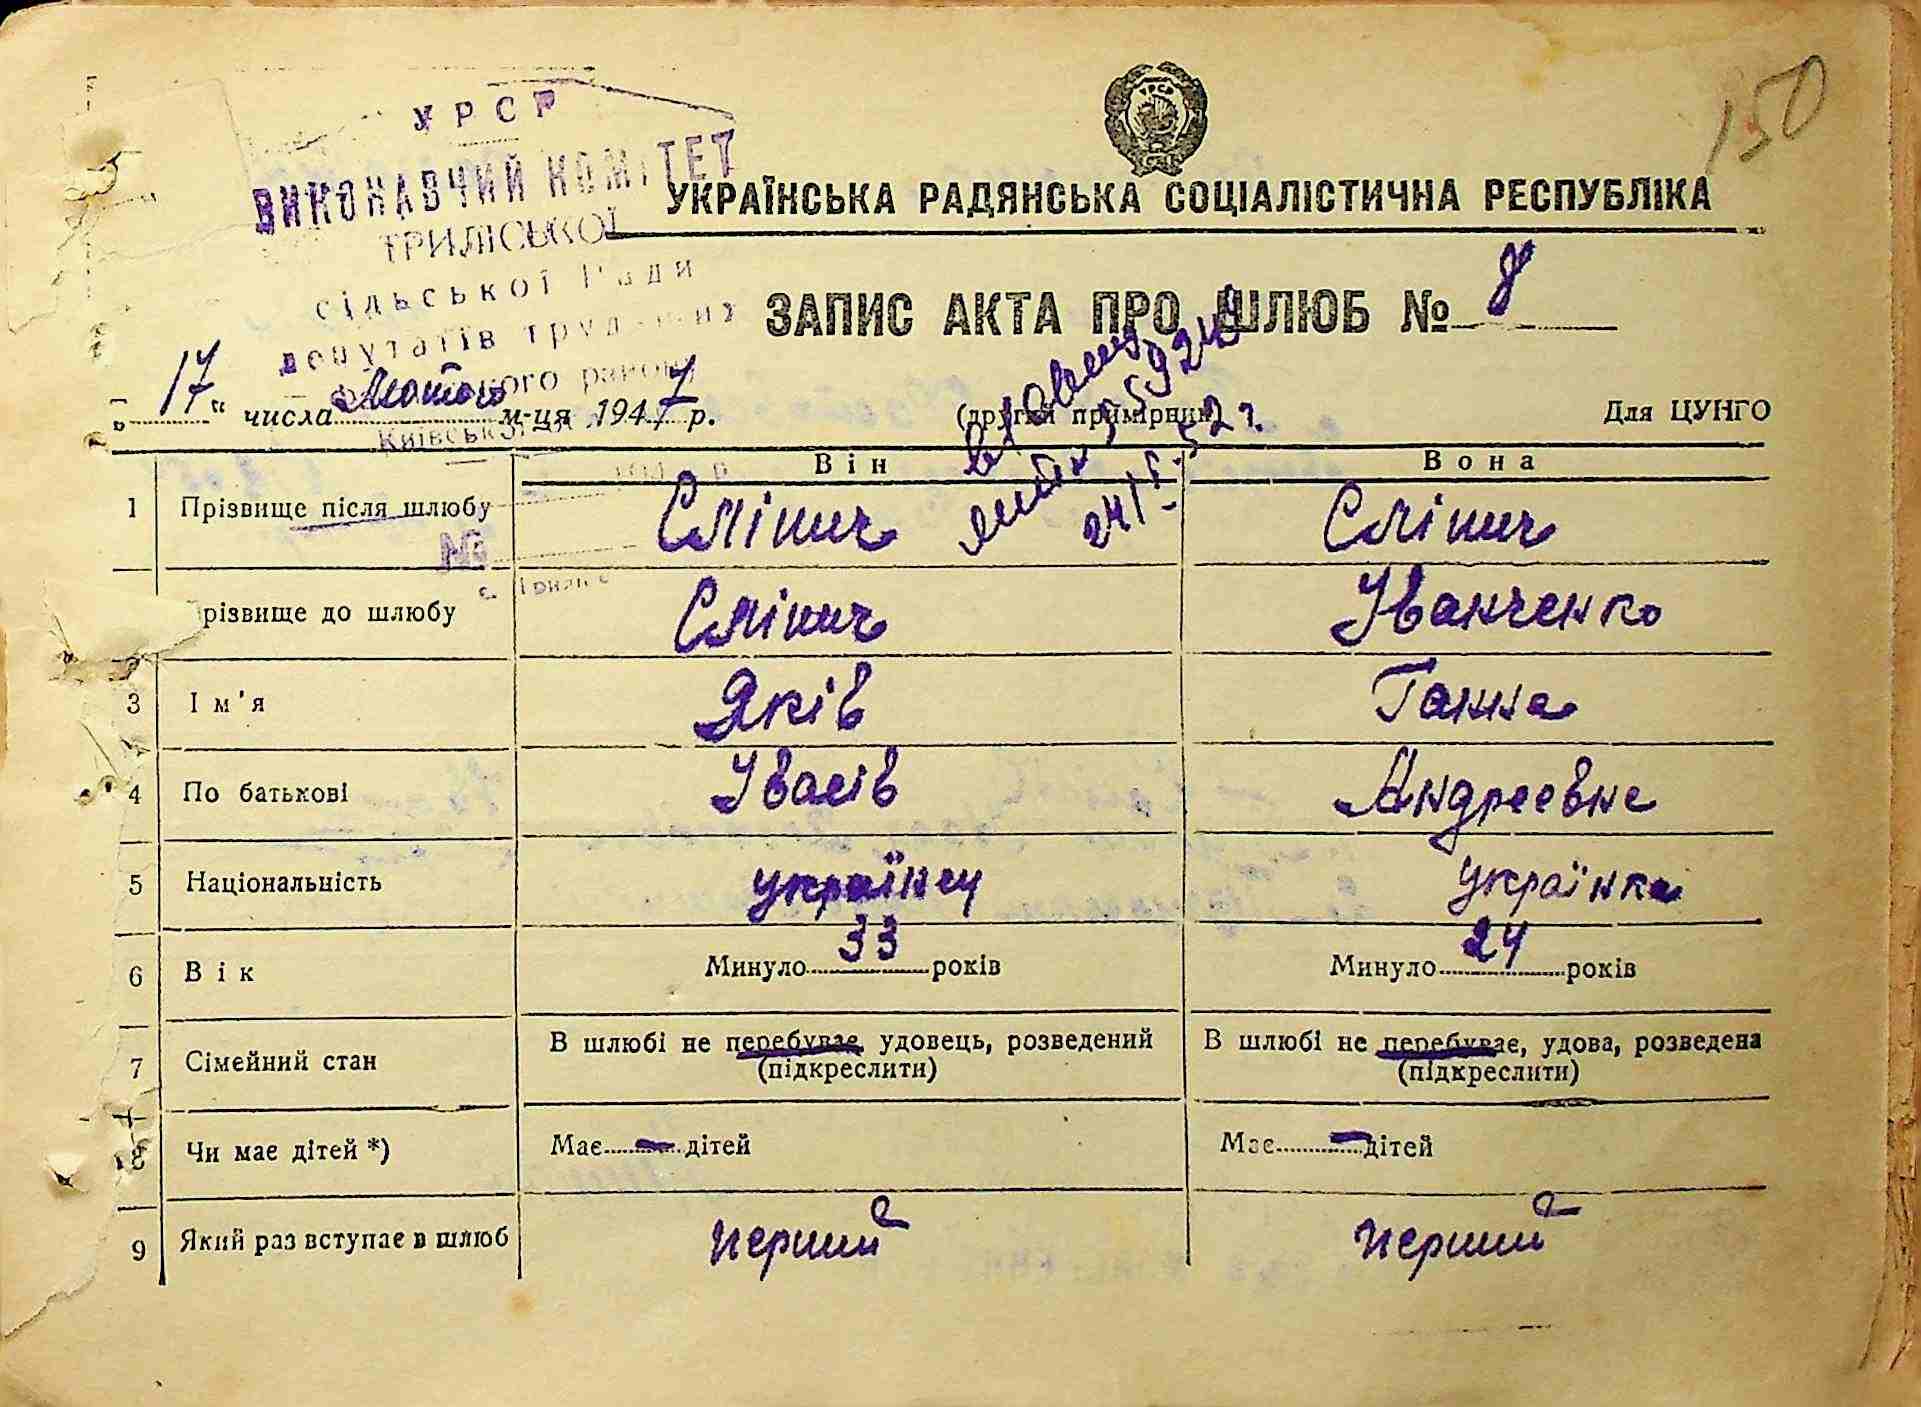 150
УРСР
ВИКОНАВЧИЙ КОМІТЕТ
ТРИЛІСЬКОЇ
сільської Ради
депутатів
Київської
№
УКРАЇНСЬКА РАДЯНСЬКА СОЦІАЛІСТИЧНА РЕСПУБЛІКА
ЗАПИС АКТА ПРО ШЛЮБ № 8
„17“ числа Лютого м-ця 1947 р.
(другий примірник)
Для ЦУНГО
Він Вона
1 Прізвище після шлюбу Сліпич Сліпич
Прізвище до шлюбу Сліпич Іванченко
3 Ім'я Яків Ганна
4 По батькові Івасів Андреевне
5 Національність українец українка
6 Вік Минуло 33 років Минуло 24 років
7 Сімейний стан В шлюбі не перебуває, удовець, розведений (підкреслити) В шлюбі не перебуває, удова, розведена (підкреслити)
8 Чи має дітей *) Має — дітей Має — дітей
9 Який раз вступає в шлюб перший перший